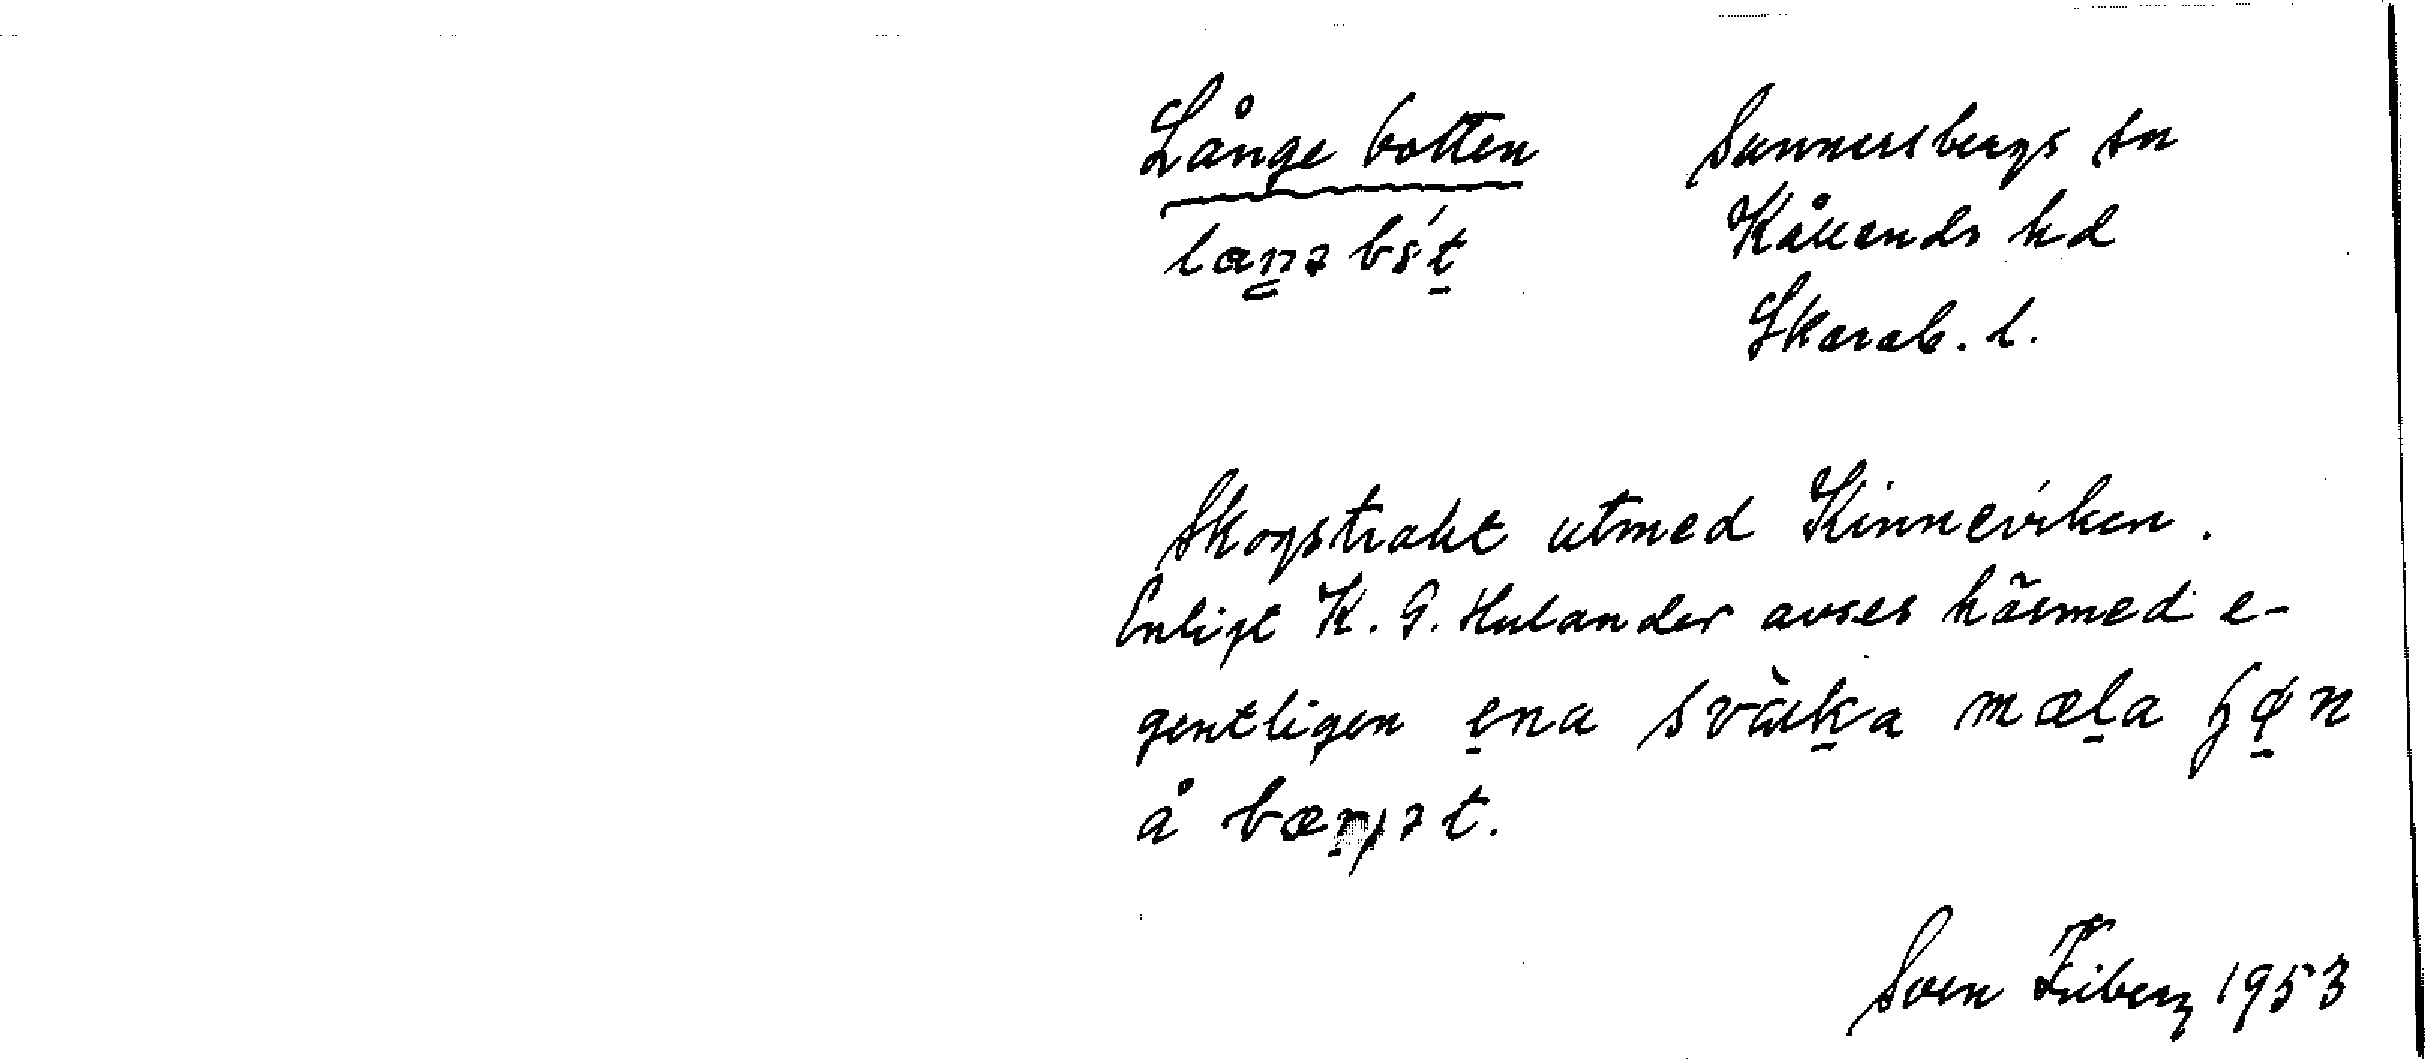 Långe botten Sunnersbergs sn
Kållands hd
Skarab. l.
Skogstrakt utmed Kinneviken.
Enligt K. G. Hulander avses härmed e-
gentligen ena svacka mæla sjøn
å bærjət.
Sven Friberg 1953